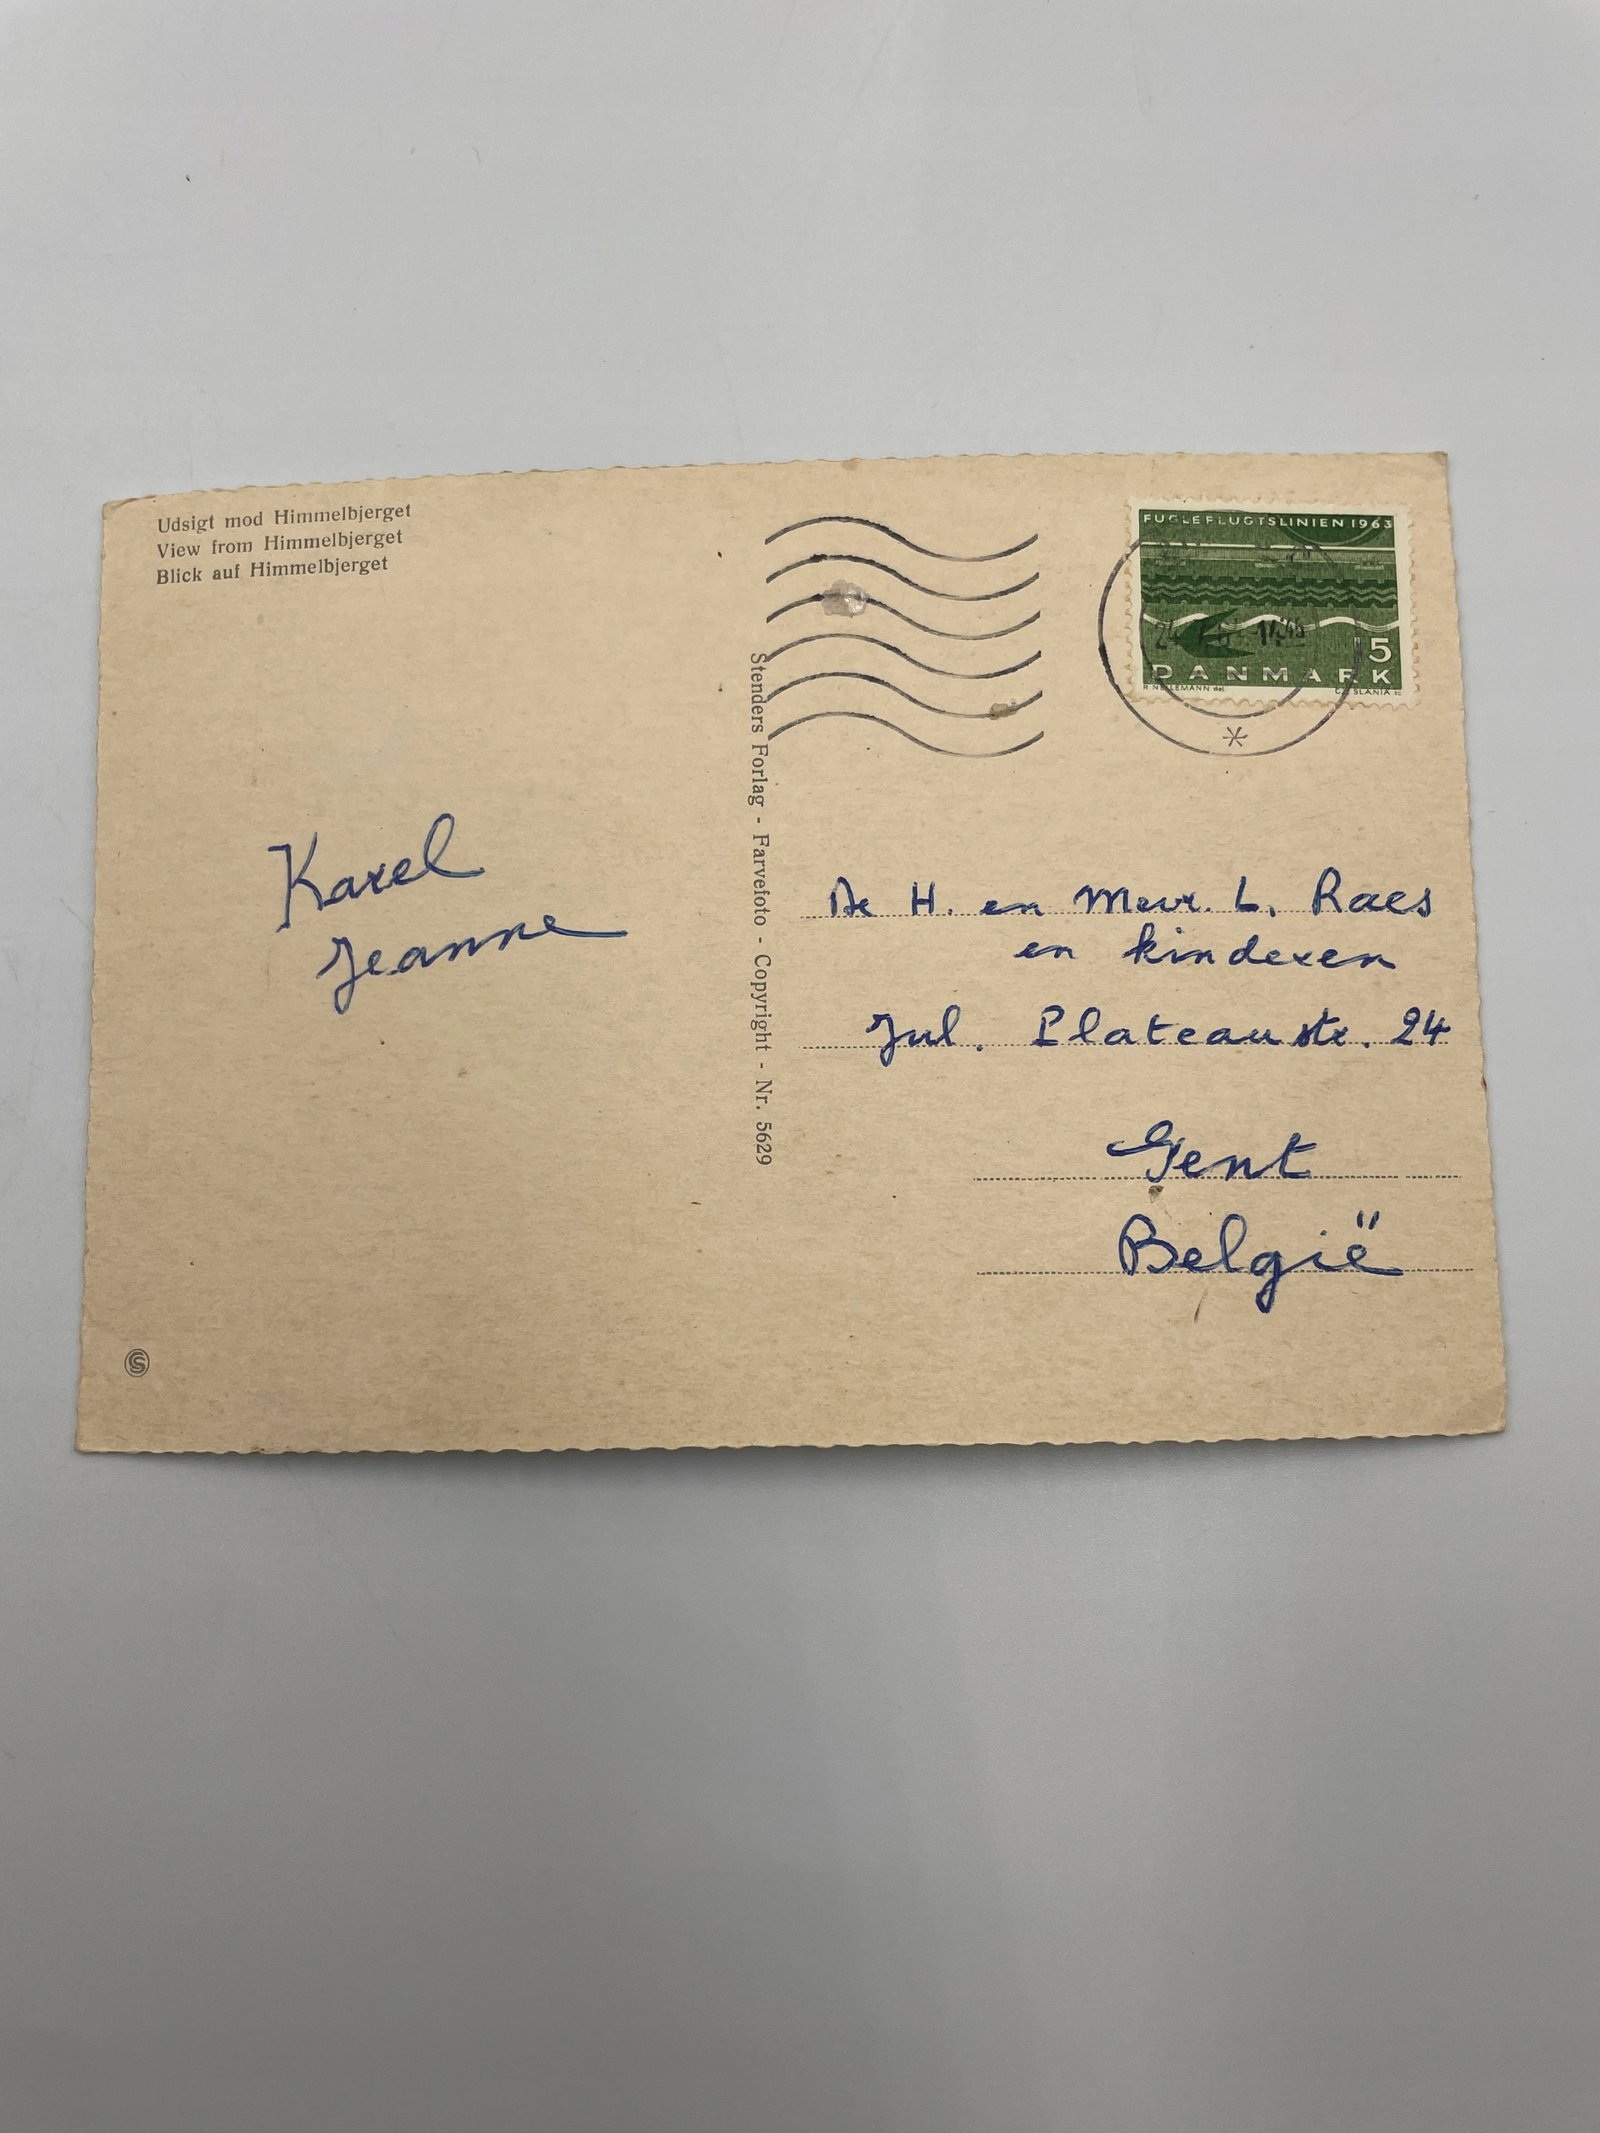 Udsigt mod Himmelbjerget
View from Himmelbjerget
Blick auf Himmelbjerget
Karel
Jeanne
Stenders Forlag - Farvefoto - Copyright - Nr. 5629
FUGLEFLUGTSLINIEN 1963
15
DANMARK
24 14
De H. en Mevr. L. Raes
en kinderen
Jul. Plateaustr. 24
Gent
België